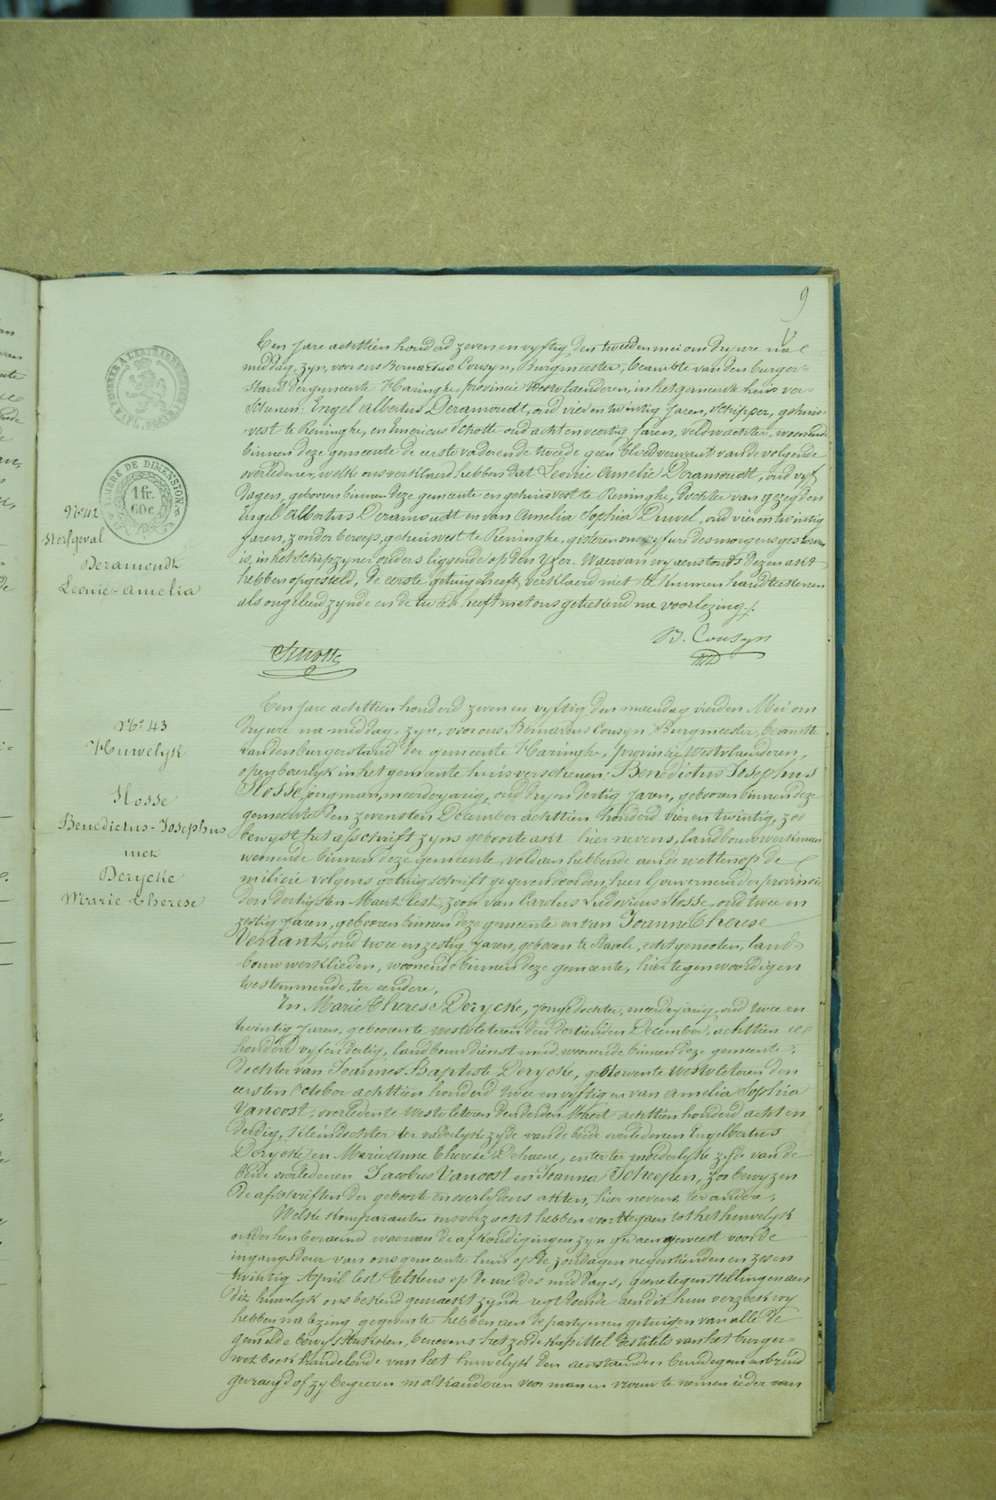 9
Een jare achttien honderd zeven en vyftig, den tweeden mei om dry ure na
middag, zyn, voor ons Bernardus Cousyn, Burgmeester, beambte van den burger-
stand der gemeente Haringhe, provincie Westvlaenderen, in het gemeente huis ver-
schenen: Engel Albertus Deramoudt, oud vier en twintig jaren, schipper, gehuis-
vest te Reninghe, en Americus Schotte oud acht en veertig jaren, veldwachter, woonende
binnen deze gemeente de eerste vader en de tweede geen bloedverwant van de volgende
overledene, welke ons verklaerd hebben dat Leonie Amelie Deramoudt, oud vyf
dagen, geboren binnen deze gemeente en gehuisvest te Reninghe, dochter van gezegden
Engel Albertus Deramoudt en van Amelia Sophia Duvel, oud vier en twintig
jaren, zonder beroep, gehuisvest te Reninghe, gisteren om vyf ure des morgens gestorven
is, in het schip zyner ouders liggende op den Yzer. Waervan wy aenstonds dezen akt
hebben opgesteld, de eerste getuige heeft verklaerd niet te kunnen handteekenen
als ongeleerd zynde en de tweede heeft met ons geteekend na voorlezing.
B. Cousyn
Schotte
TIMBRE DE DIMENSION
1 fr.
60 c
N° 42
Sterfgeval
Deramoudt
Leonie-Amelia
N° 43
Huwelyk
Hosse
Benedictus-Josephus
met
Derycke
Marie-Therese
Een jare achttien honderd zeven en vyftig den maendag vierden Mei om
dry ure na middag, zyn, voor ons Bernardus Cousyn Burgmeester, beambte
van den burgerstand der gemeente Haringhe, provincie Westvlaenderen,
openbaerlyk in het gemeente huis verschenen: Benedictus Josephus
Hosse, jongman, meerderjarig, oud dry en dertig jaren, geboren binnen deze
gemeente den zevensten December achttien honderd vier en twintig, zoo
bewyst het afschrift zyns geboorte akt hier nevens, landbouwwerkman
woonende binnen deze gemeente, voldaen hebbende aen de wetten op de
milicie volgens getuigschrift gegeven door den heer Gouverneur der provincie
den dertigsten Maert lest, zoon van Carolus Ludovicus Hosse, oud twee en
zestig jaren, geboren binnen deze gemeente en van Joanne Therese
oud twee en zestig jaren, geboren te Stavele, echtgenooten, land-
bouwwerklieden, woonende binnen deze gemeente, hier tegenwoordig en
toestemmende, ter eendere,
En Marie Therese Derycke, jonge dochter, meerderjarig, oud twee en
twintig jaren, geboren te Westvleteren den dertienden December, achttien
honderd vyf en dertig, landbouwdienstmeid, woonende binnen deze gemeente,
dochter van Joannes Baptist Derycke, overleden te Westvleteren den
eersten October achttien honderd twee en vyftig en van Amelia Sophia
Vanoost, overleden te Westvleteren den Maert achttien honderd acht en
dertig, kleindochter ter vaderlyke zyde van de beide overledenen Engelbertus
Derycke en Marie Anne Therese Dehaene, en ter moederlyke zyde van de
beide overledenen Jacobus Vanoost en Joanna Schepen, zoo bewyzen
de afschriften der geboorte en overlydens akten, hier nevens, ter andere,
Welke komparanten ons verzocht hebben voort te gaen tot het huwelyk
onder hen beraemd waervan de afkondigingen zyn gedaen geweest voor de
ingangdeur van ons gemeente huis op de zondagen negentienden en zes en
twintig April lest telkens op de middags, geene tegenstellingen aen
dit huwelyk ons bekend gemaekt zynde regt doende aen dit hun verzoek wy
hebben na lezing gegeven te hebben aen de partyen en getuigen van alle de
gemelde bewysstukken, benevens het zesde kapittel Titel V van het burger-
wetboek handelende van het huwelyk den aenstaenden bruidegom en bruid
gevraegd of zy begeeren malkanderen voor man en vrouw te nemen ieder van